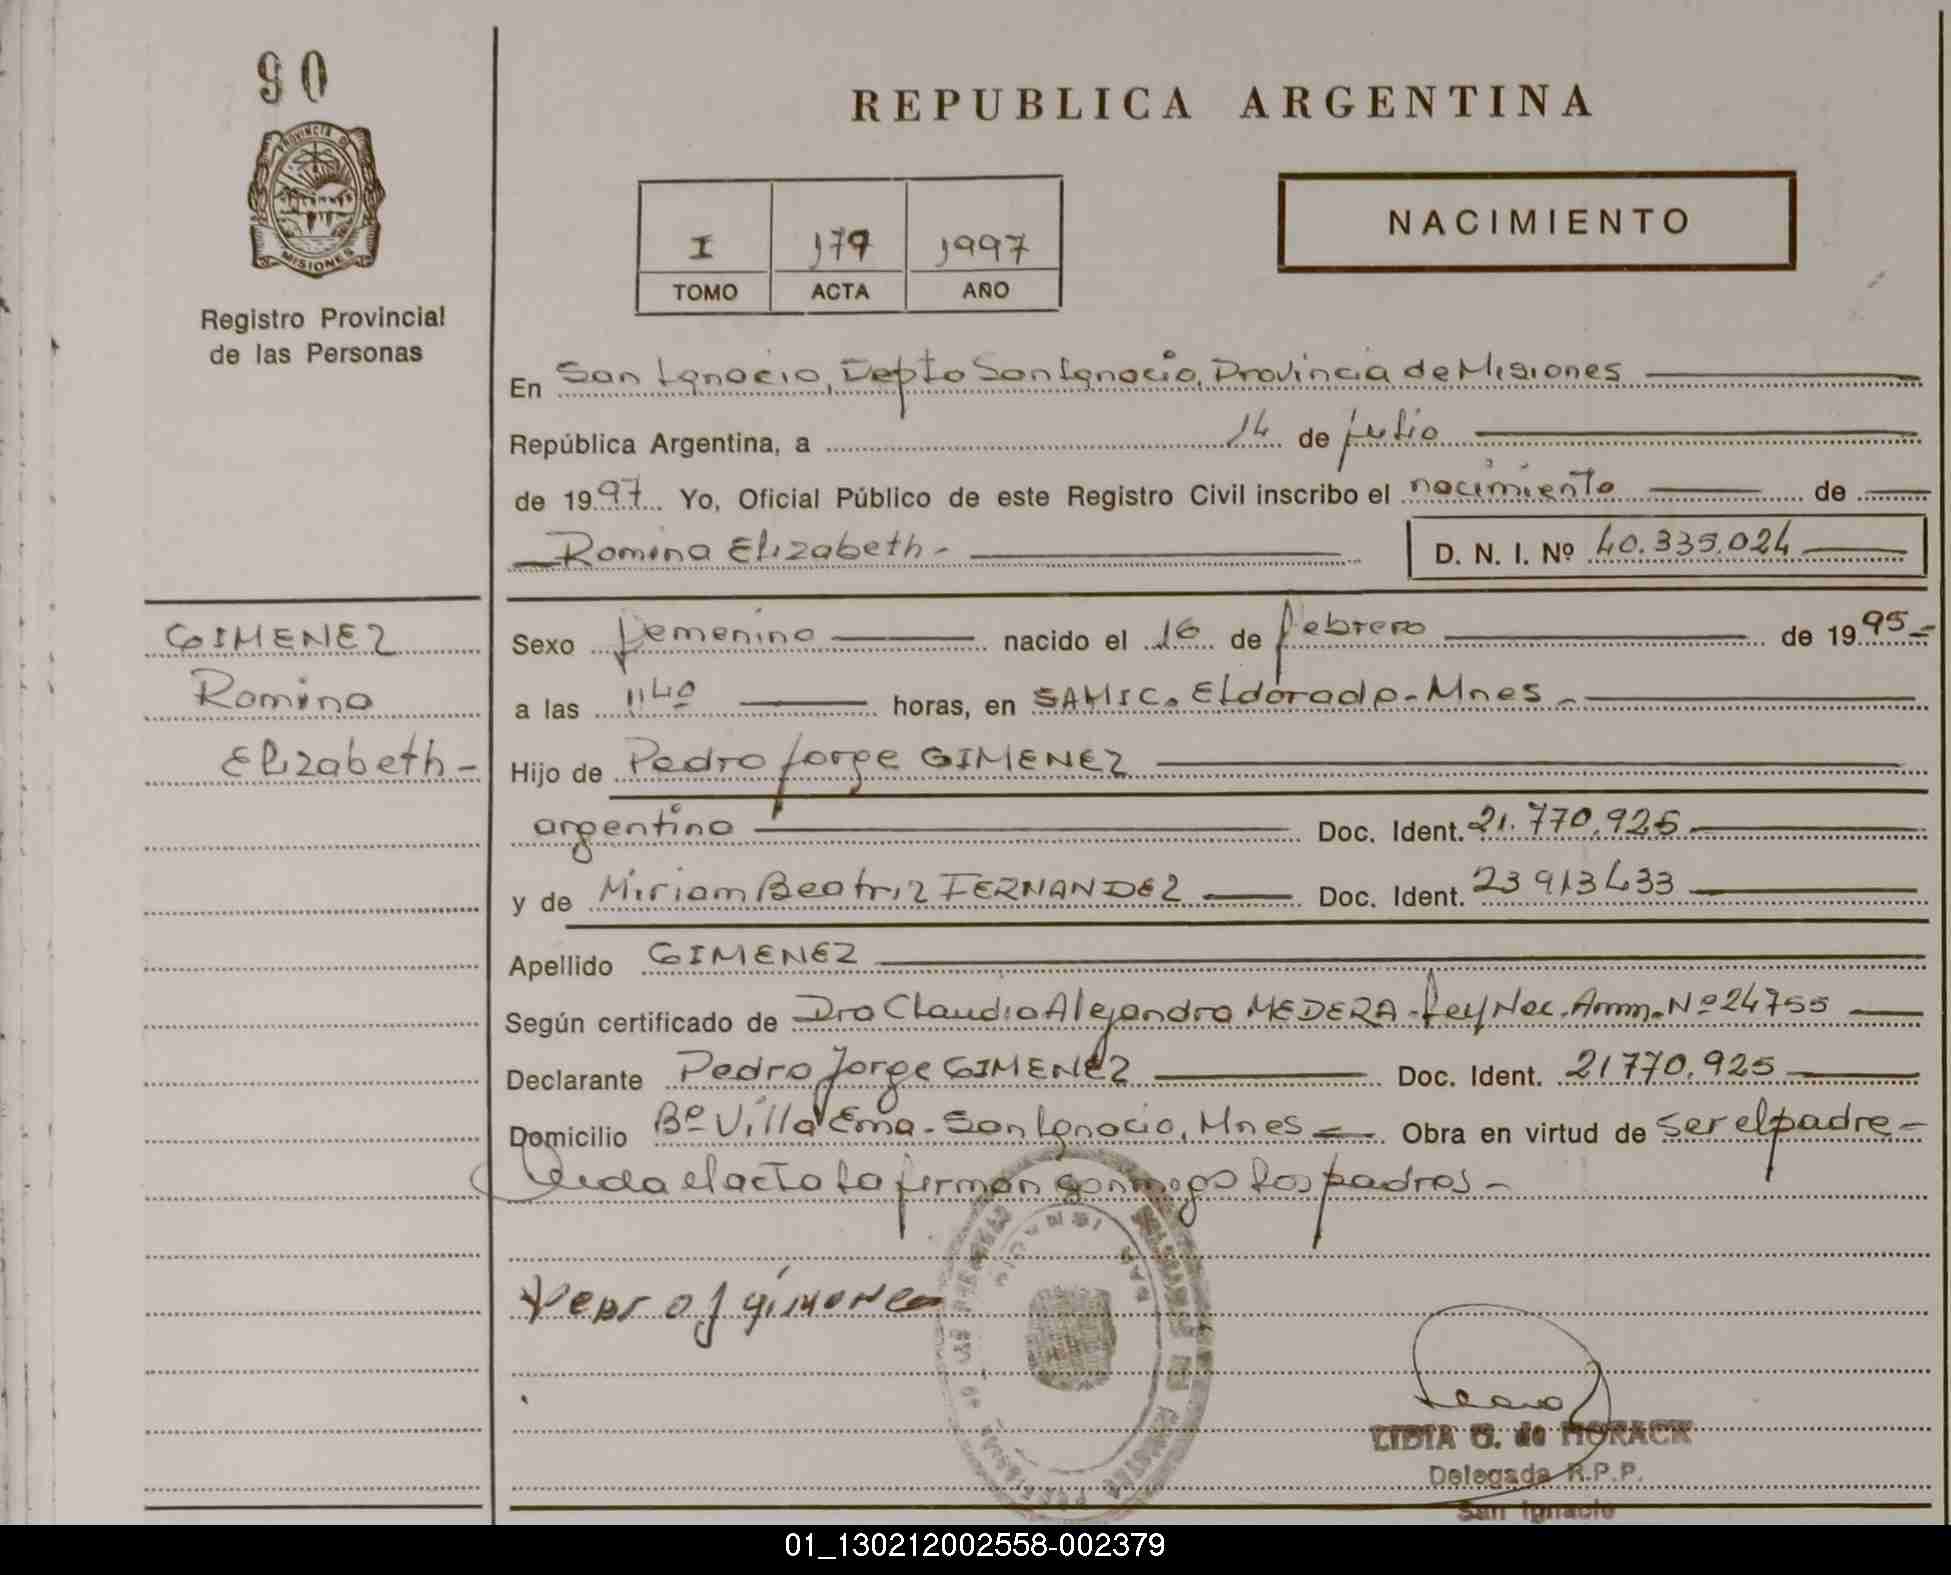 90
PROVINCIA DE
MISIONES
Registro Provincial
de las Personas
REPUBLICA ARGENTINA
I 179 1997
TOMO ACTA AÑO
NACIMIENTO
En San Ignacio, Depto San Ignacio, Provincia de Misiones
República Argentina, a 14 de julio
de 1997 Yo, Oficial Público de este Registro Civil inscribo el nacimiento de
Romina Elizabeth-
D. N. I. Nº 40.335.024
GIMENEZ
Romina
Elizabeth-
Sexo femenino nacido el 16 de febrero de 1995-
a las 11 40 horas, en SAMIC. Eldorado-Mnes-
Hijo de Pedro Jorge GIMENEZ
argentino Doc. Ident. 21.770.925
y de Miriam Beatriz FERNANDEZ Doc. Ident. 23 913 433
Apellido GIMENEZ
Según certificado de Dra Claudia Alejandra MEDERA-Ley Nac. Nº 24755
Declarante Pedro Jorge GIMENEZ Doc. Ident. 21770.925
Domicilio Bº Villa Ema-San Ignacio, Mnes- Obra en virtud de ser el padre-
Leida el acta la firman conmigo los padres-
Pedro J gimenez
LIDIA G. de HORACK
Delegada R.P.P.
San Ignacio
01_130212002558-002379